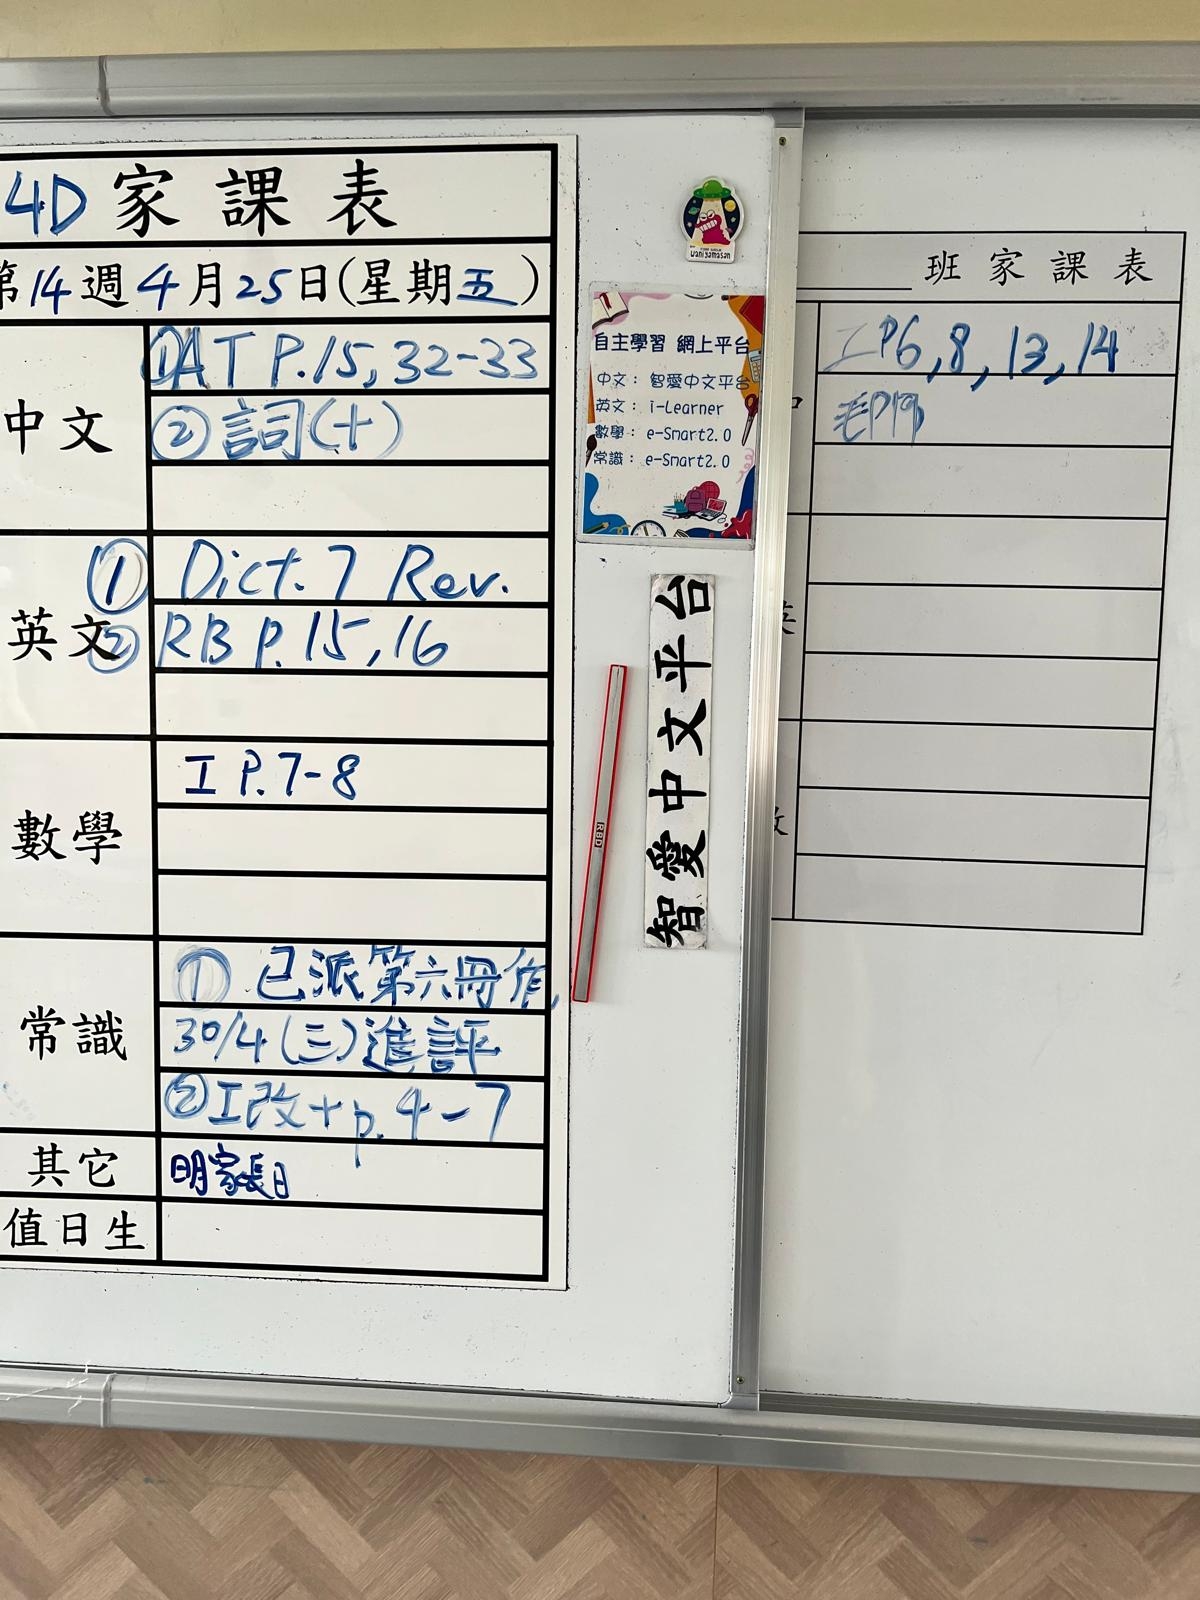 4D 家課表
第14週4月25日(星期五)
中文
①AT P.15, 32-33
②詞(十)
英文
① Dict. 7 Rev.
② RB P.15, 16
數學
工 P.7-8
常識
① 已派第六冊作,
30/4(三)進評
②工改+p.4-7
其它
明家長日
值日生
wani yamasan
自主學習 網上平台
中文： 智愛中文平台
英文： i-Learner
數學： e-Smart2.0
常識： e-Smart2.0
智愛中文平台
RBD
班家課表
工P6,8,13,14